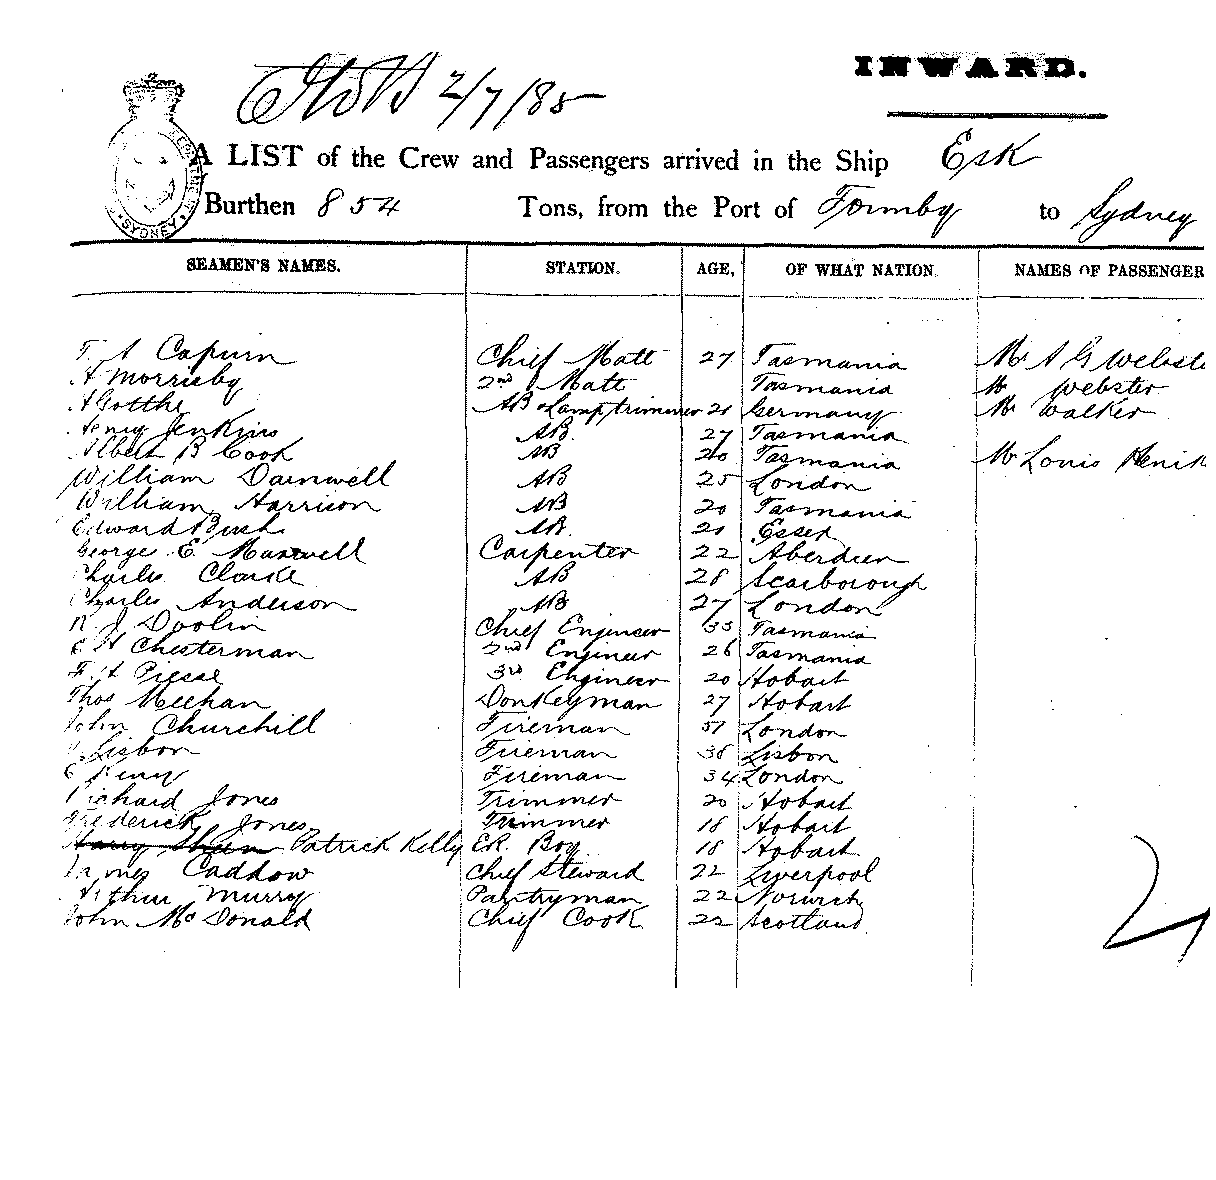 INWARD.
2/7/85
A LIST of the Crew and Passengers arrived in the Ship Esk
Burthen 854 Tons, from the Port of Formby to Sydney
SEAMEN'S NAMES. STATION. AGE, OF WHAT NATION. NAMES OF PASSENGER
T. A Capurn Chief Matt 27 Tasmania Mr A G Webste
A Morrisby 2nd Matt Tasmania Mr Webster
A Gotthe AB & Lamptrimmer 21 Germany Mr Walker
Henry Jenkins AB 27 Tasmania
Albert B Cook AB 20 Tasmania Mr Louis Henik
William Darnwell AB 25 London
William Harrison AB 20 Tasmania
Edward Bush AB 21 Essex
George E Maxwell Carpenter 22 Aberdeen
Charles Clarke AB 28 Scarborough
Charles Anderson AB 27 London
R J Doolin Chief Engineer 33 Tasmania
E H Chesterman 2nd Engineer 26 Tasmania
F. A Piesse 3rd Engineer 20 Hobart
Thos Meehan Donkeyman 27 Hobart
John Churchill Fireman 51 London
Lisbon Fireman 38 Lisbon
Fireman 34 London
Richard Jones Trimmer 20 Hobart
Frederick Jones Trimmer 18 Hobart
Harry Patrick Kelly ER. Boy 18 Hobart
James Caddow Chief Steward 22 Liverpool
Arthur Murry Pantryman 22 Norwich
John McDonald Chief Cook 22 Scotland